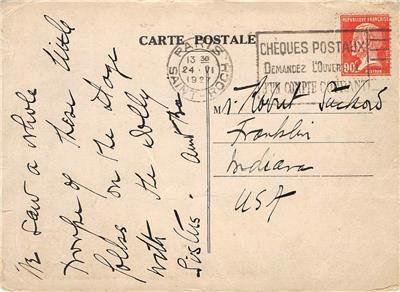 CARTE POSTALE
PARIS
13 30
24 · VI
ST ROCH
CHEQUES POSTAUX
DEMANDEZ L'OUVER
D'UN COMPTE COURANT
REPUBLIQUE FRANÇAISE
90c
We saw a whole
troupe of these little
folks on the stage
with the Dolly
Sisters. Aunt
Mr. Robert
Franklin
Indiana
USA